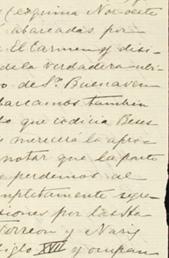 (esquina Nor-oeste
abarcadas por
El Carmen y disi-
de la verdadera ubi-
o de Sn. Buenaven-
barcamos tambien
to que codicia Bees
mereciera la apro-
notar que la parte
e perdemos al
mpletamente segre-
siones por las Sta
Torreon y Nari
siglo XVII y ocupan